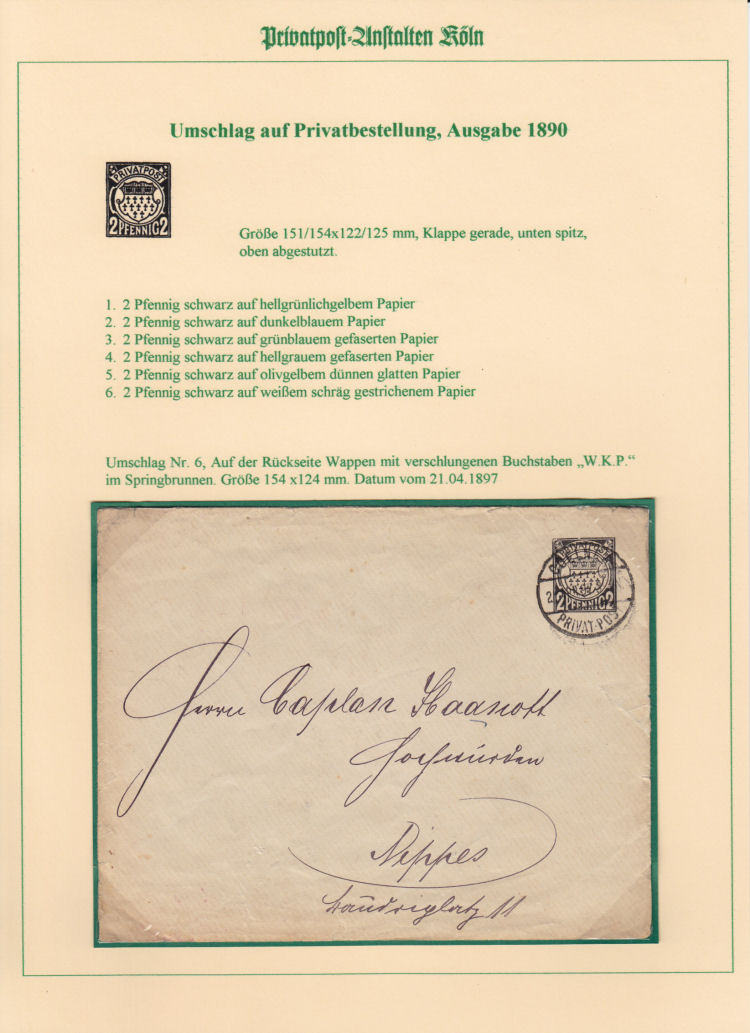 Privatpost-Anstalten Köln
Umschlag auf Privatbestellung, Ausgabe 1890
PRIVATPOST
2 PFENNIG 2
Größe 151/154x122/125 mm, Klappe gerade, unten spitz,
oben abgestutzt.
1. 2 Pfennig schwarz auf hellgrünlichgelbem Papier
2. 2 Pfennig schwarz auf dunkelblauem Papier
3. 2 Pfennig schwarz auf grünblauem gefaserten Papier
4. 2 Pfennig schwarz auf hellgrauem gefaserten Papier
5. 2 Pfennig schwarz auf olivgelbem dünnen glatten Papier
6. 2 Pfennig schwarz auf weißem schräg gestrichenem Papier
Umschlag Nr. 6, Auf der Rückseite Wappen mit verschlungenen Buchstaben „W.K.P.“
im Springbrunnen. Größe 154 x124 mm. Datum vom 21.04.1897
PRIVATPOST
2 PFENNIG 2
PRIVAT-POST
Herrn Caplan Haanott
Hochwürden
Nippes
11